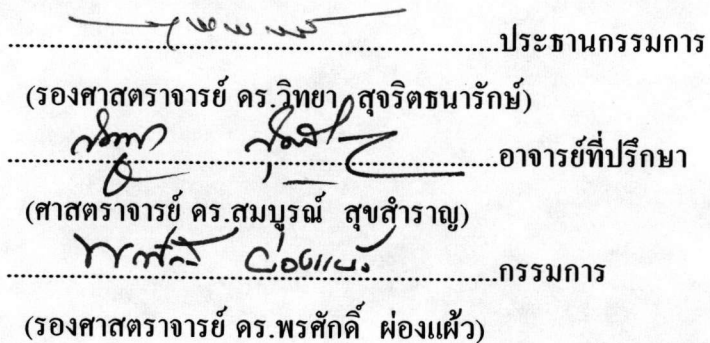 ..........ประธานกรรมการ
(รองศาสตราจารย์ ดร.วิทยา สุจริตธนารักษ์)
..........อาจารย์ที่ปรึกษา
(ศาสตราจารย์ ดร.สมบูรณ์ สุขสำราญ)
พรศักดิ์ ผ่องแผ้ว
..........กรรมการ
(รองศาสตราจารย์ ดร.พรศักดิ์ ผ่องแผ้ว)